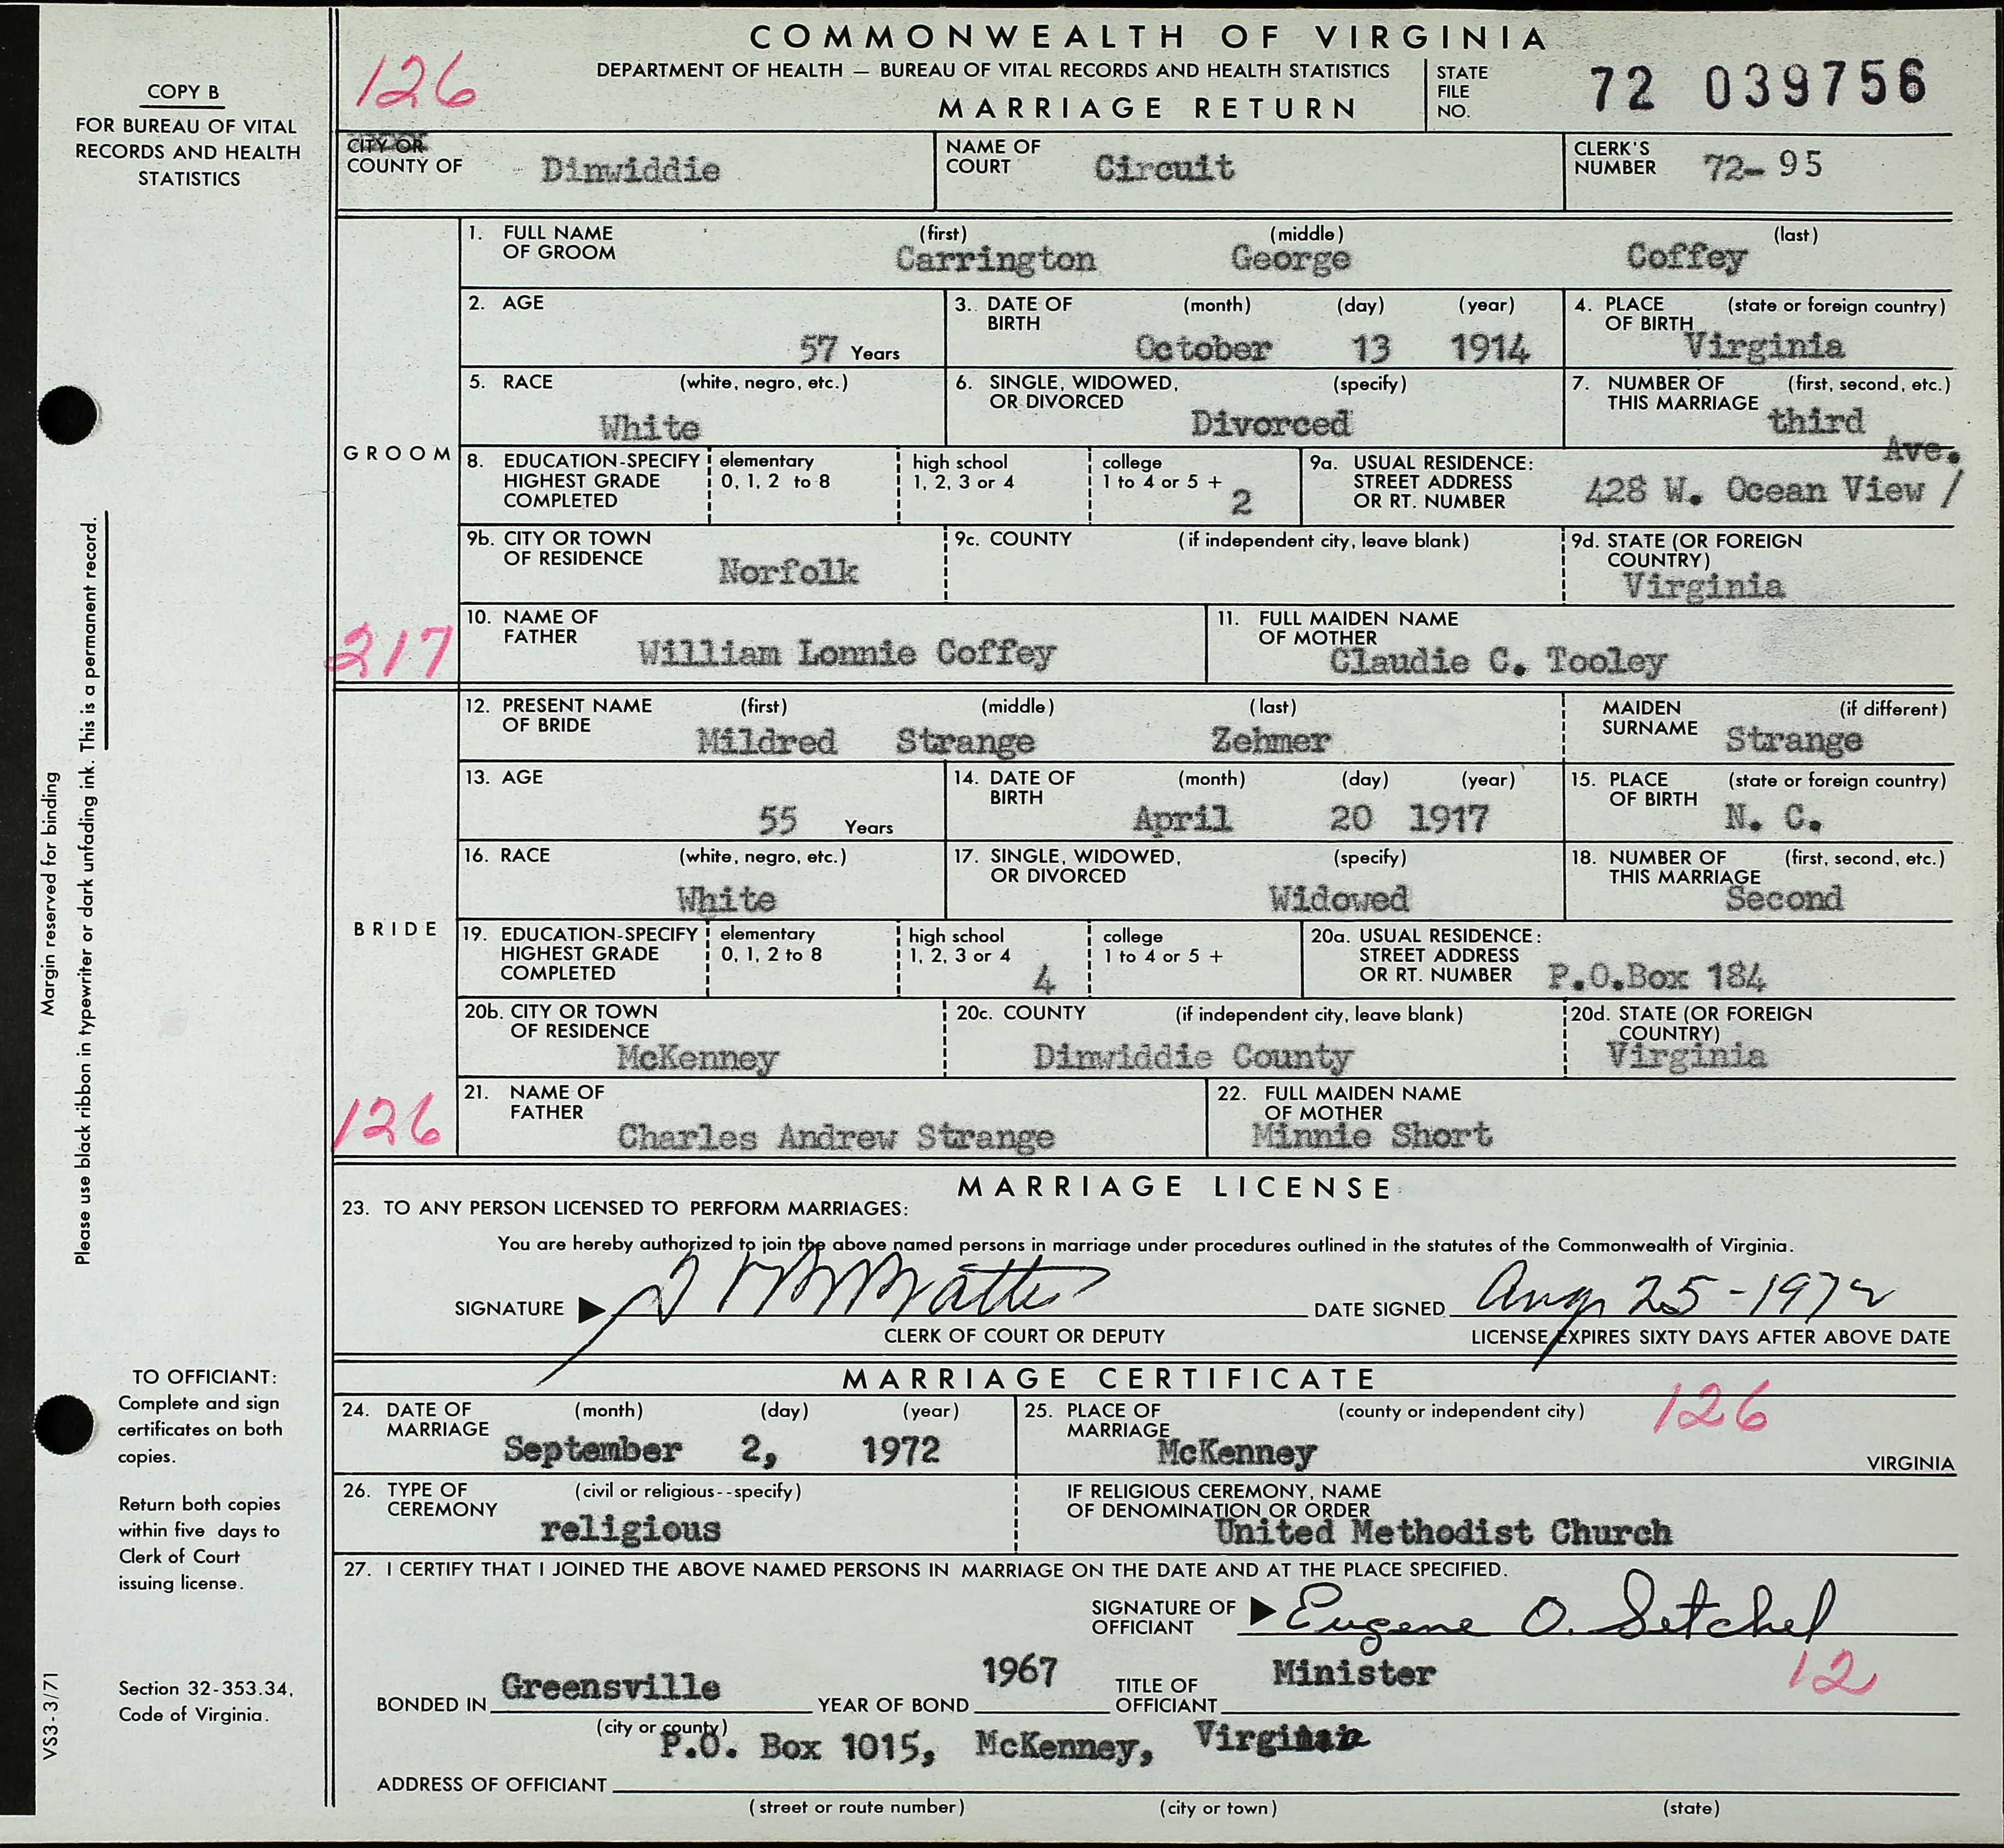 COMMONWEALTH OF VIRGINIA
DEPARTMENT OF HEALTH — BUREAU OF VITAL RECORDS AND HEALTH STATISTICS
MARRIAGE RETURN
126
STATE FILE NO. 72 039756
COPY B
FOR BUREAU OF VITAL
RECORDS AND HEALTH
STATISTICS
CITY OR COUNTY OF Dinwiddie NAME OF COURT Circuit CLERK'S NUMBER 72-95
GROOM
1. FULL NAME OF GROOM (first) Carrington (middle) George (last) Coffey
2. AGE 57 Years 3. DATE OF BIRTH (month) October (day) 13 (year) 1914 4. PLACE OF BIRTH (state or foreign country) Virginia
5. RACE (white, negro, etc.) White 6. SINGLE, WIDOWED, OR DIVORCED (specify) Divorced 7. NUMBER OF THIS MARRIAGE (first, second, etc.) third
8. EDUCATION-SPECIFY HIGHEST GRADE COMPLETED elementary 0, 1, 2 to 8 high school 1, 2, 3 or 4 college 1 to 4 or 5 + 2 9a. USUAL RESIDENCE: STREET ADDRESS OR RT. NUMBER 428 W. Ocean View / Ave.
9b. CITY OR TOWN OF RESIDENCE Norfolk 9c. COUNTY (if independent city, leave blank) 9d. STATE (OR FOREIGN COUNTRY) Virginia
217
10. NAME OF FATHER William Lonnie Coffey 11. FULL MAIDEN NAME OF MOTHER Claudie C. Tooley
BRIDE
12. PRESENT NAME OF BRIDE (first) Mildred (middle) Strange (last) Zehmer MAIDEN SURNAME (if different) Strange
13. AGE 55 Years 14. DATE OF BIRTH (month) April (day) 20 (year) 1917 15. PLACE OF BIRTH (state or foreign country) N. C.
16. RACE (white, negro, etc.) White 17. SINGLE, WIDOWED, OR DIVORCED (specify) Widowed 18. NUMBER OF THIS MARRIAGE (first, second, etc.) Second
19. EDUCATION-SPECIFY HIGHEST GRADE COMPLETED elementary 0, 1, 2 to 8 high school 1, 2, 3 or 4 4 college 1 to 4 or 5 + 20a. USUAL RESIDENCE: STREET ADDRESS OR RT. NUMBER P.O.Box 184
20b. CITY OR TOWN OF RESIDENCE McKenney 20c. COUNTY (if independent city, leave blank) Dinwiddie County 20d. STATE (OR FOREIGN COUNTRY) Virginia
126
21. NAME OF FATHER Charles Andrew Strange 22. FULL MAIDEN NAME OF MOTHER Minnie Short
MARRIAGE LICENSE
23. TO ANY PERSON LICENSED TO PERFORM MARRIAGES:
You are hereby authorized to join the above named persons in marriage under procedures outlined in the statutes of the Commonwealth of Virginia.
SIGNATURE DATE SIGNED Aug 25-1972
CLERK OF COURT OR DEPUTY LICENSE EXPIRES SIXTY DAYS AFTER ABOVE DATE
MARRIAGE CERTIFICATE
24. DATE OF MARRIAGE (month) September (day) 2, (year) 1972 25. PLACE OF MARRIAGE (county or independent city) McKenney 126 VIRGINIA
26. TYPE OF CEREMONY (civil or religious--specify) religious IF RELIGIOUS CEREMONY, NAME OF DENOMINATION OR ORDER United Methodist Church
27. I CERTIFY THAT I JOINED THE ABOVE NAMED PERSONS IN MARRIAGE ON THE DATE AND AT THE PLACE SPECIFIED.
SIGNATURE OF OFFICIANT Eugene O. Setchel
BONDED IN Greensville (city or county) YEAR OF BOND 1967 TITLE OF OFFICIANT Minister 12
ADDRESS OF OFFICIANT P.O. Box 1015, McKenney, Virginia
(street or route number) (city or town) (state)
Margin reserved for binding
Please use black ribbon in typewriter or dark unfading ink. This is a permanent record.
TO OFFICIANT:
Complete and sign
certificates on both
copies.
Return both copies
within five days to
Clerk of Court
issuing license.
Section 32-353.34,
Code of Virginia.
VS3-3/71